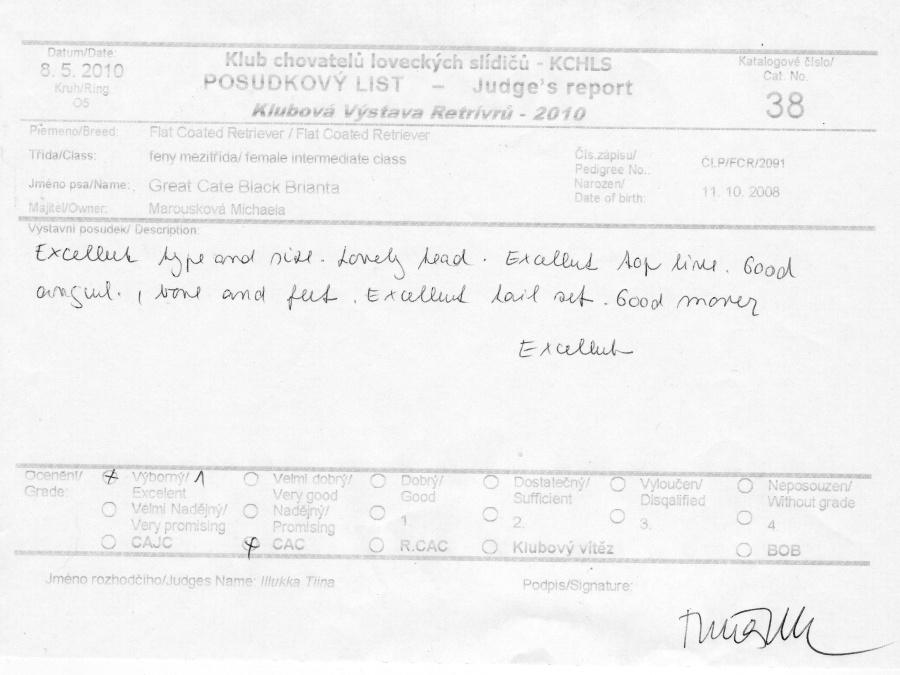 Datum/Date:
8. 5. 2010
Kruh/Ring
O5
Klub chovatelů loveckých slídičů - KCHLS
POSUDKOVÝ LIST – Judge's report
Klubová Výstava Retrívrů - 2010
Katalogové číslo/
Cat. No.
38
Plemeno/Breed: Flat Coated Retriever / Flat Coated Retriever
Třída/Class: feny mezitřída/ female intermediate class
Čís.zápisu/
Pedigree No.: ČLP/FCR/2091
Jméno psa/Name: Great Cate Black Brianta
Narozen/
Date of birth: 11. 10. 2008
Majitel/Owner: Marousková Michaela
Výstavní posudek/ Description:
Excellent type and size. Lovely head. Excellent top line. Good
angul., bone and feet. Excellent tail set. Good mover
Excellent
Ocenění/
Grade:
Výborný/ 1
Excelent
Velmi dobrý/
Very good
Dobrý/
Good
Dostatečný/
Sufficient
Vyloučen/
Disqalified
Neposouzen/
Without grade
Velmi Nadějný/
Very promising
Nadějný/
Promising
1.
2.
3.
4
CAJC
CAC
R.CAC
Klubový vítěz
BOB
Jméno rozhodčího/Judges Name: Illukka Tiina
Podpis/Signature: